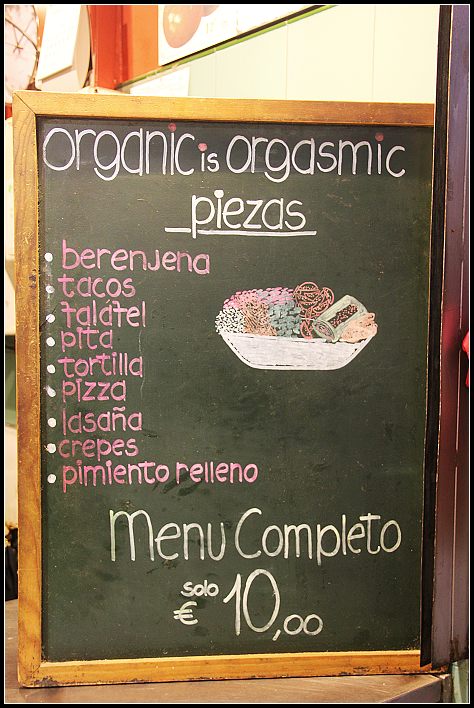 organic is orgasmic
piezas
• berenjena
• tacos
• falafel
• pita
• tortilla
• pizza
• lasaña
• crepes
• pimiento relleno
Menu Completo
solo
€ 10,00